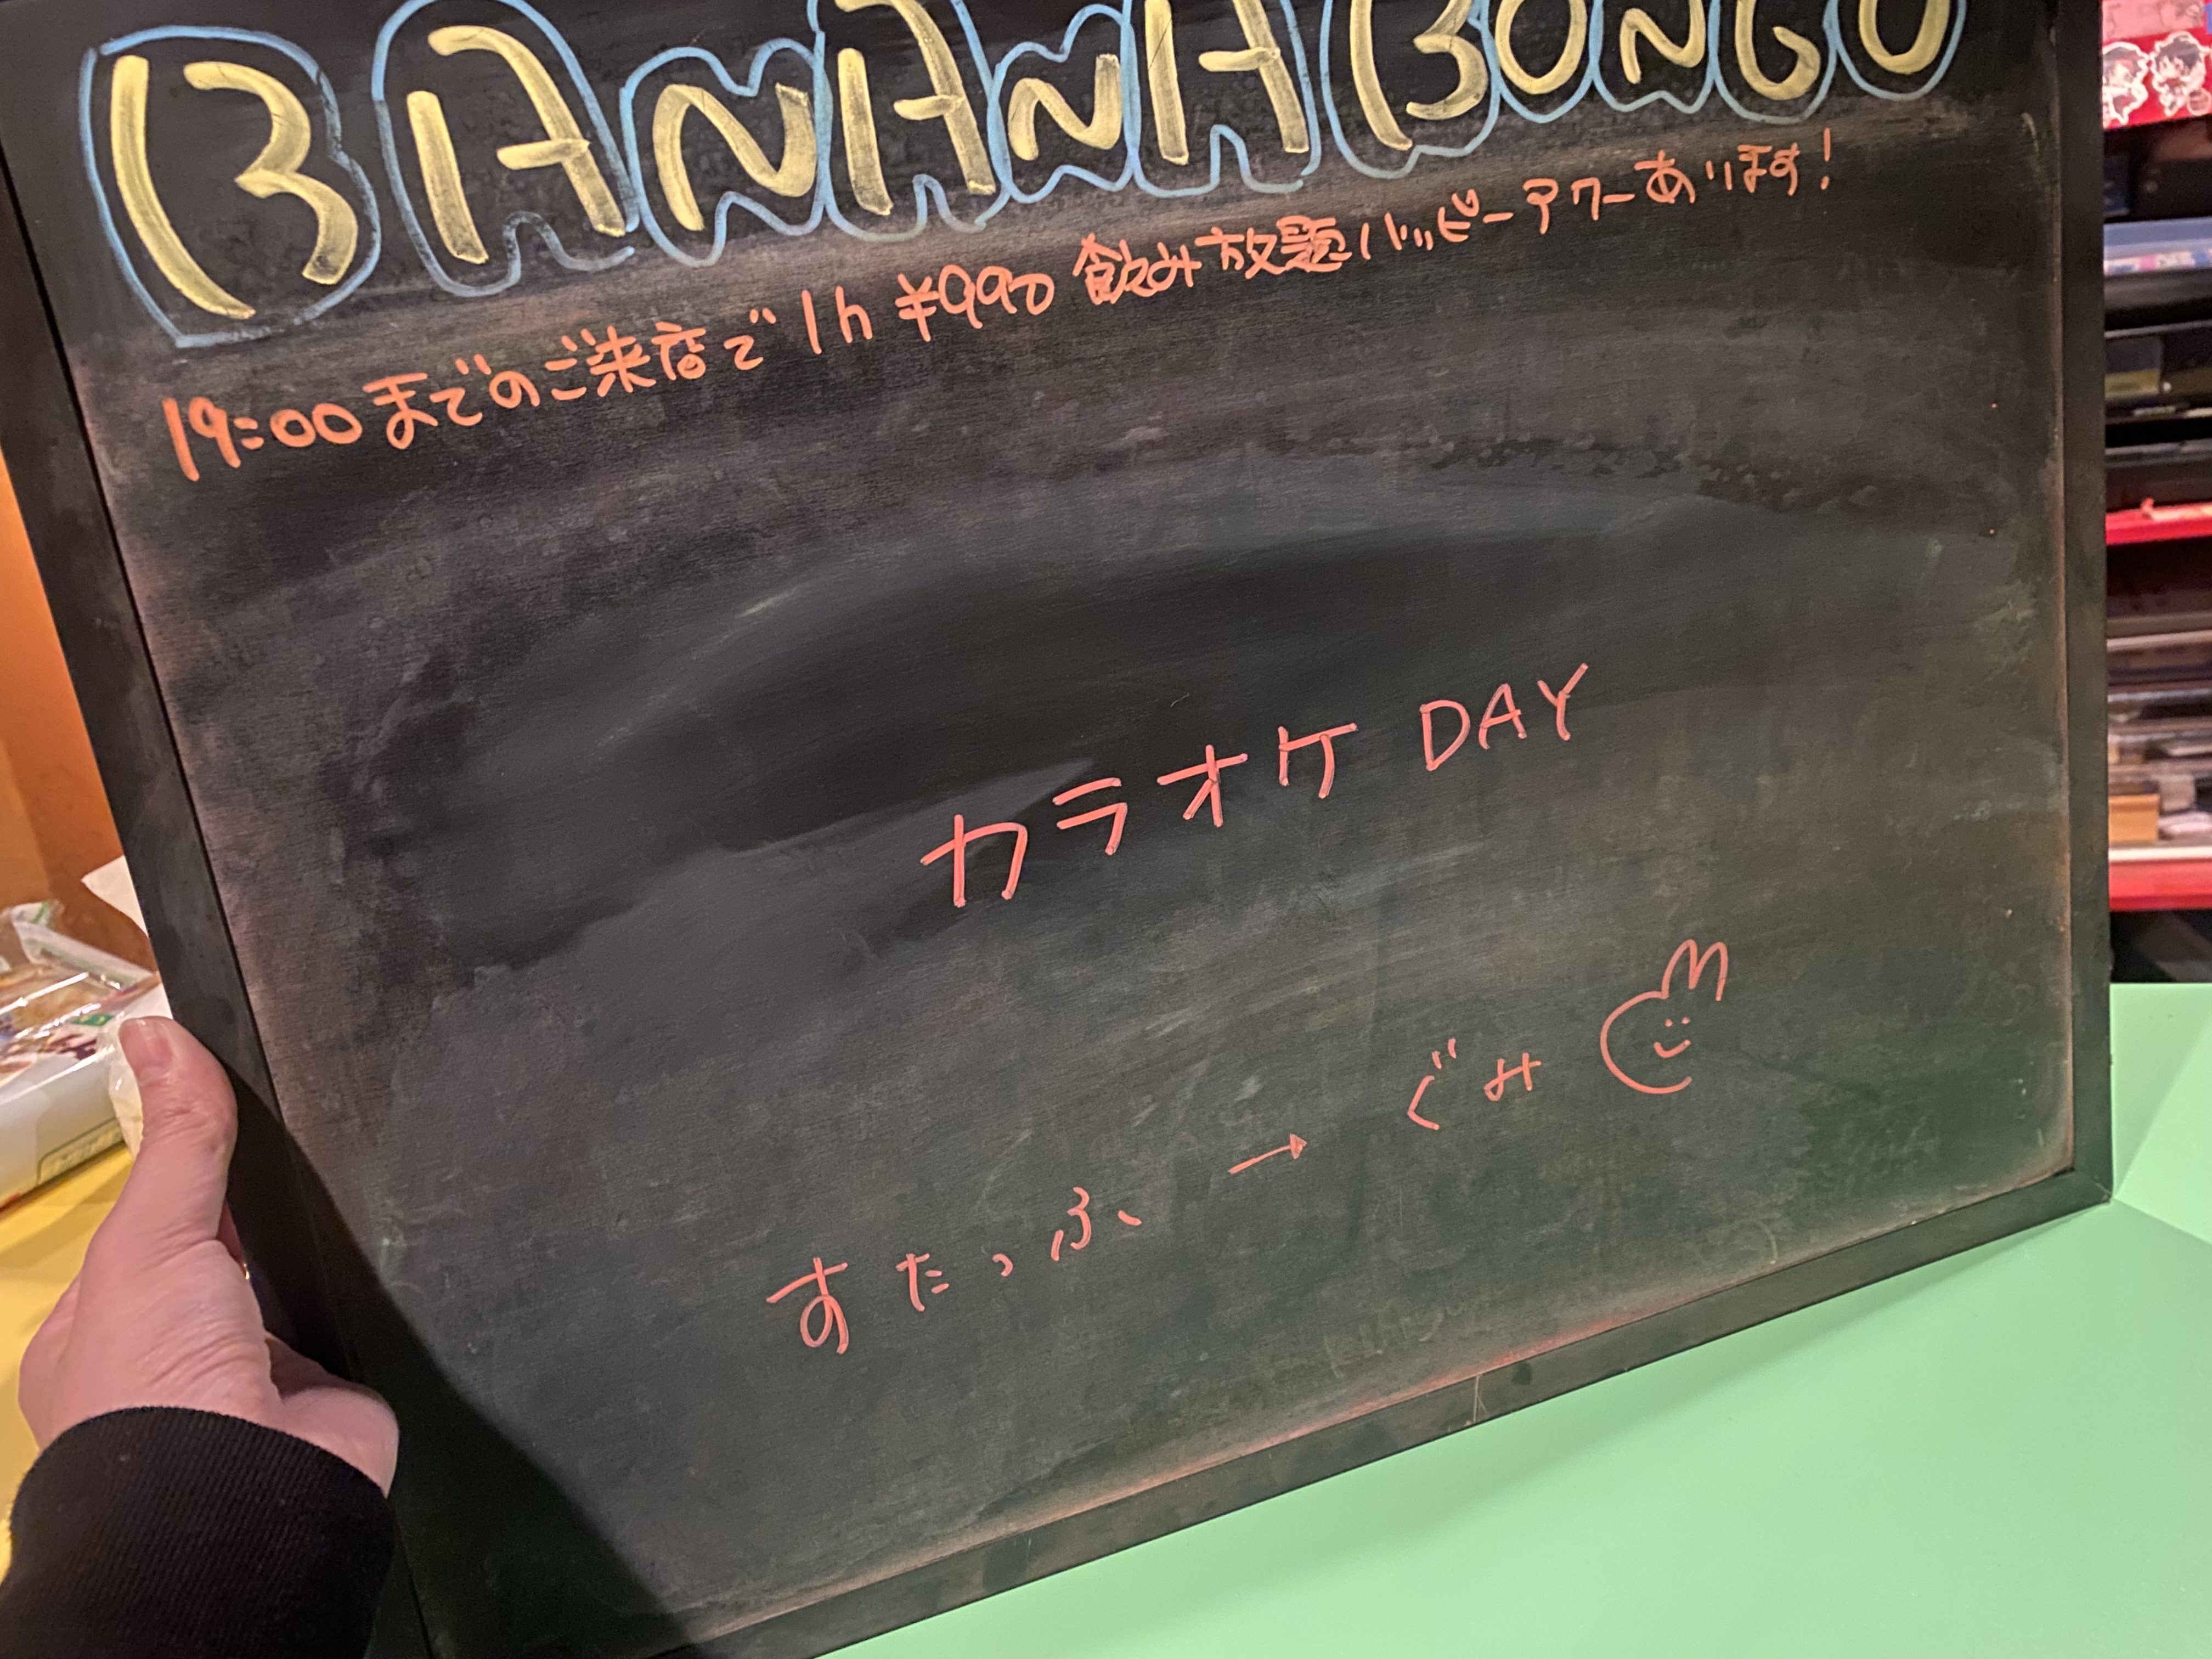 BANANA BONGO
19:00までのご来店で1h ¥990 飲み放題ハッピーアワーあります!
カラオケ DAY
すたっふ → ぐみ